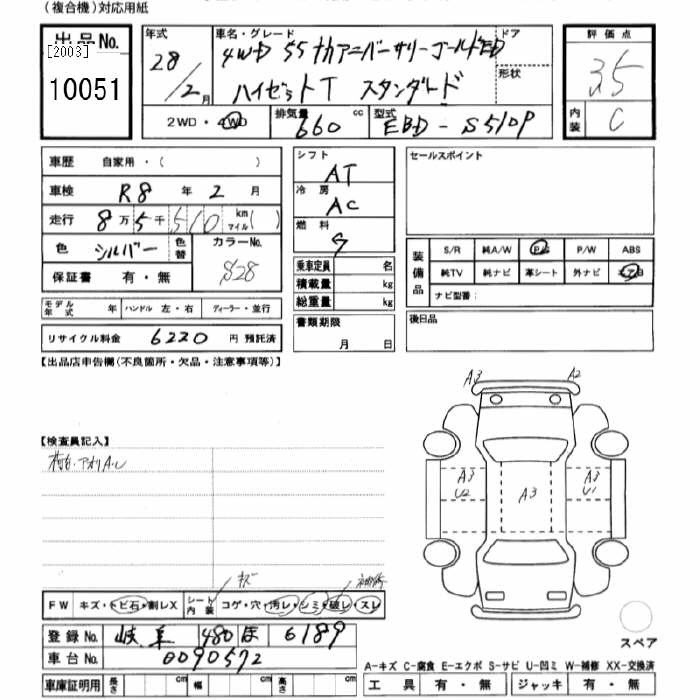 (複合機)対応用紙
出品No.
[2003]
10051
年式
28/2月
車名・グレード
4WD 55ナカアニバーサリーゴールドED
ハイゼットT スタンダード
ドア
形状
2WD・4WD
排気量 660 cc
型式 EBD-S510P
評価点
3.5
内装 C
車歴 自家用・( )
車検 R8年2月
走行 8万5千510 km マイル( )
色 シルバー 色替
カラーNo. S28
保証書 有・無
モデル年式 年 ハンドル 左・右 ディーラー・並行
リサイクル料金 6220 円 預託済
シフト AT
冷房 AC
燃料 G
乗車定員 名
積載量 kg
総重量 kg
書類期限 月 日
セールスポイント
装備品
S/R 純A/W P/S P/W ABS
純TV 純ナビ 革シート 外ナビ エアB
ナビ型番:
後日品
【出品店申告欄(不良箇所・欠品・注意事項等)】
【検査員記入】
A3 A2
A3 U2
A3
A3 U1
スペア
FW キズ・トビ石・割レX
シート内装 コゲ・穴・汚レ・シミ・破レ・スレ
キズ
登録No. 岐阜 480 ほ 6189
車台No. 0090572
車庫証明用 長さ cm 幅 cm 高さ cm
A-キズ C-腐食 E-エクボ S-サビ U-凹ミ W-補修 XX-交換済
工具 有・無 ジャッキ 有・無